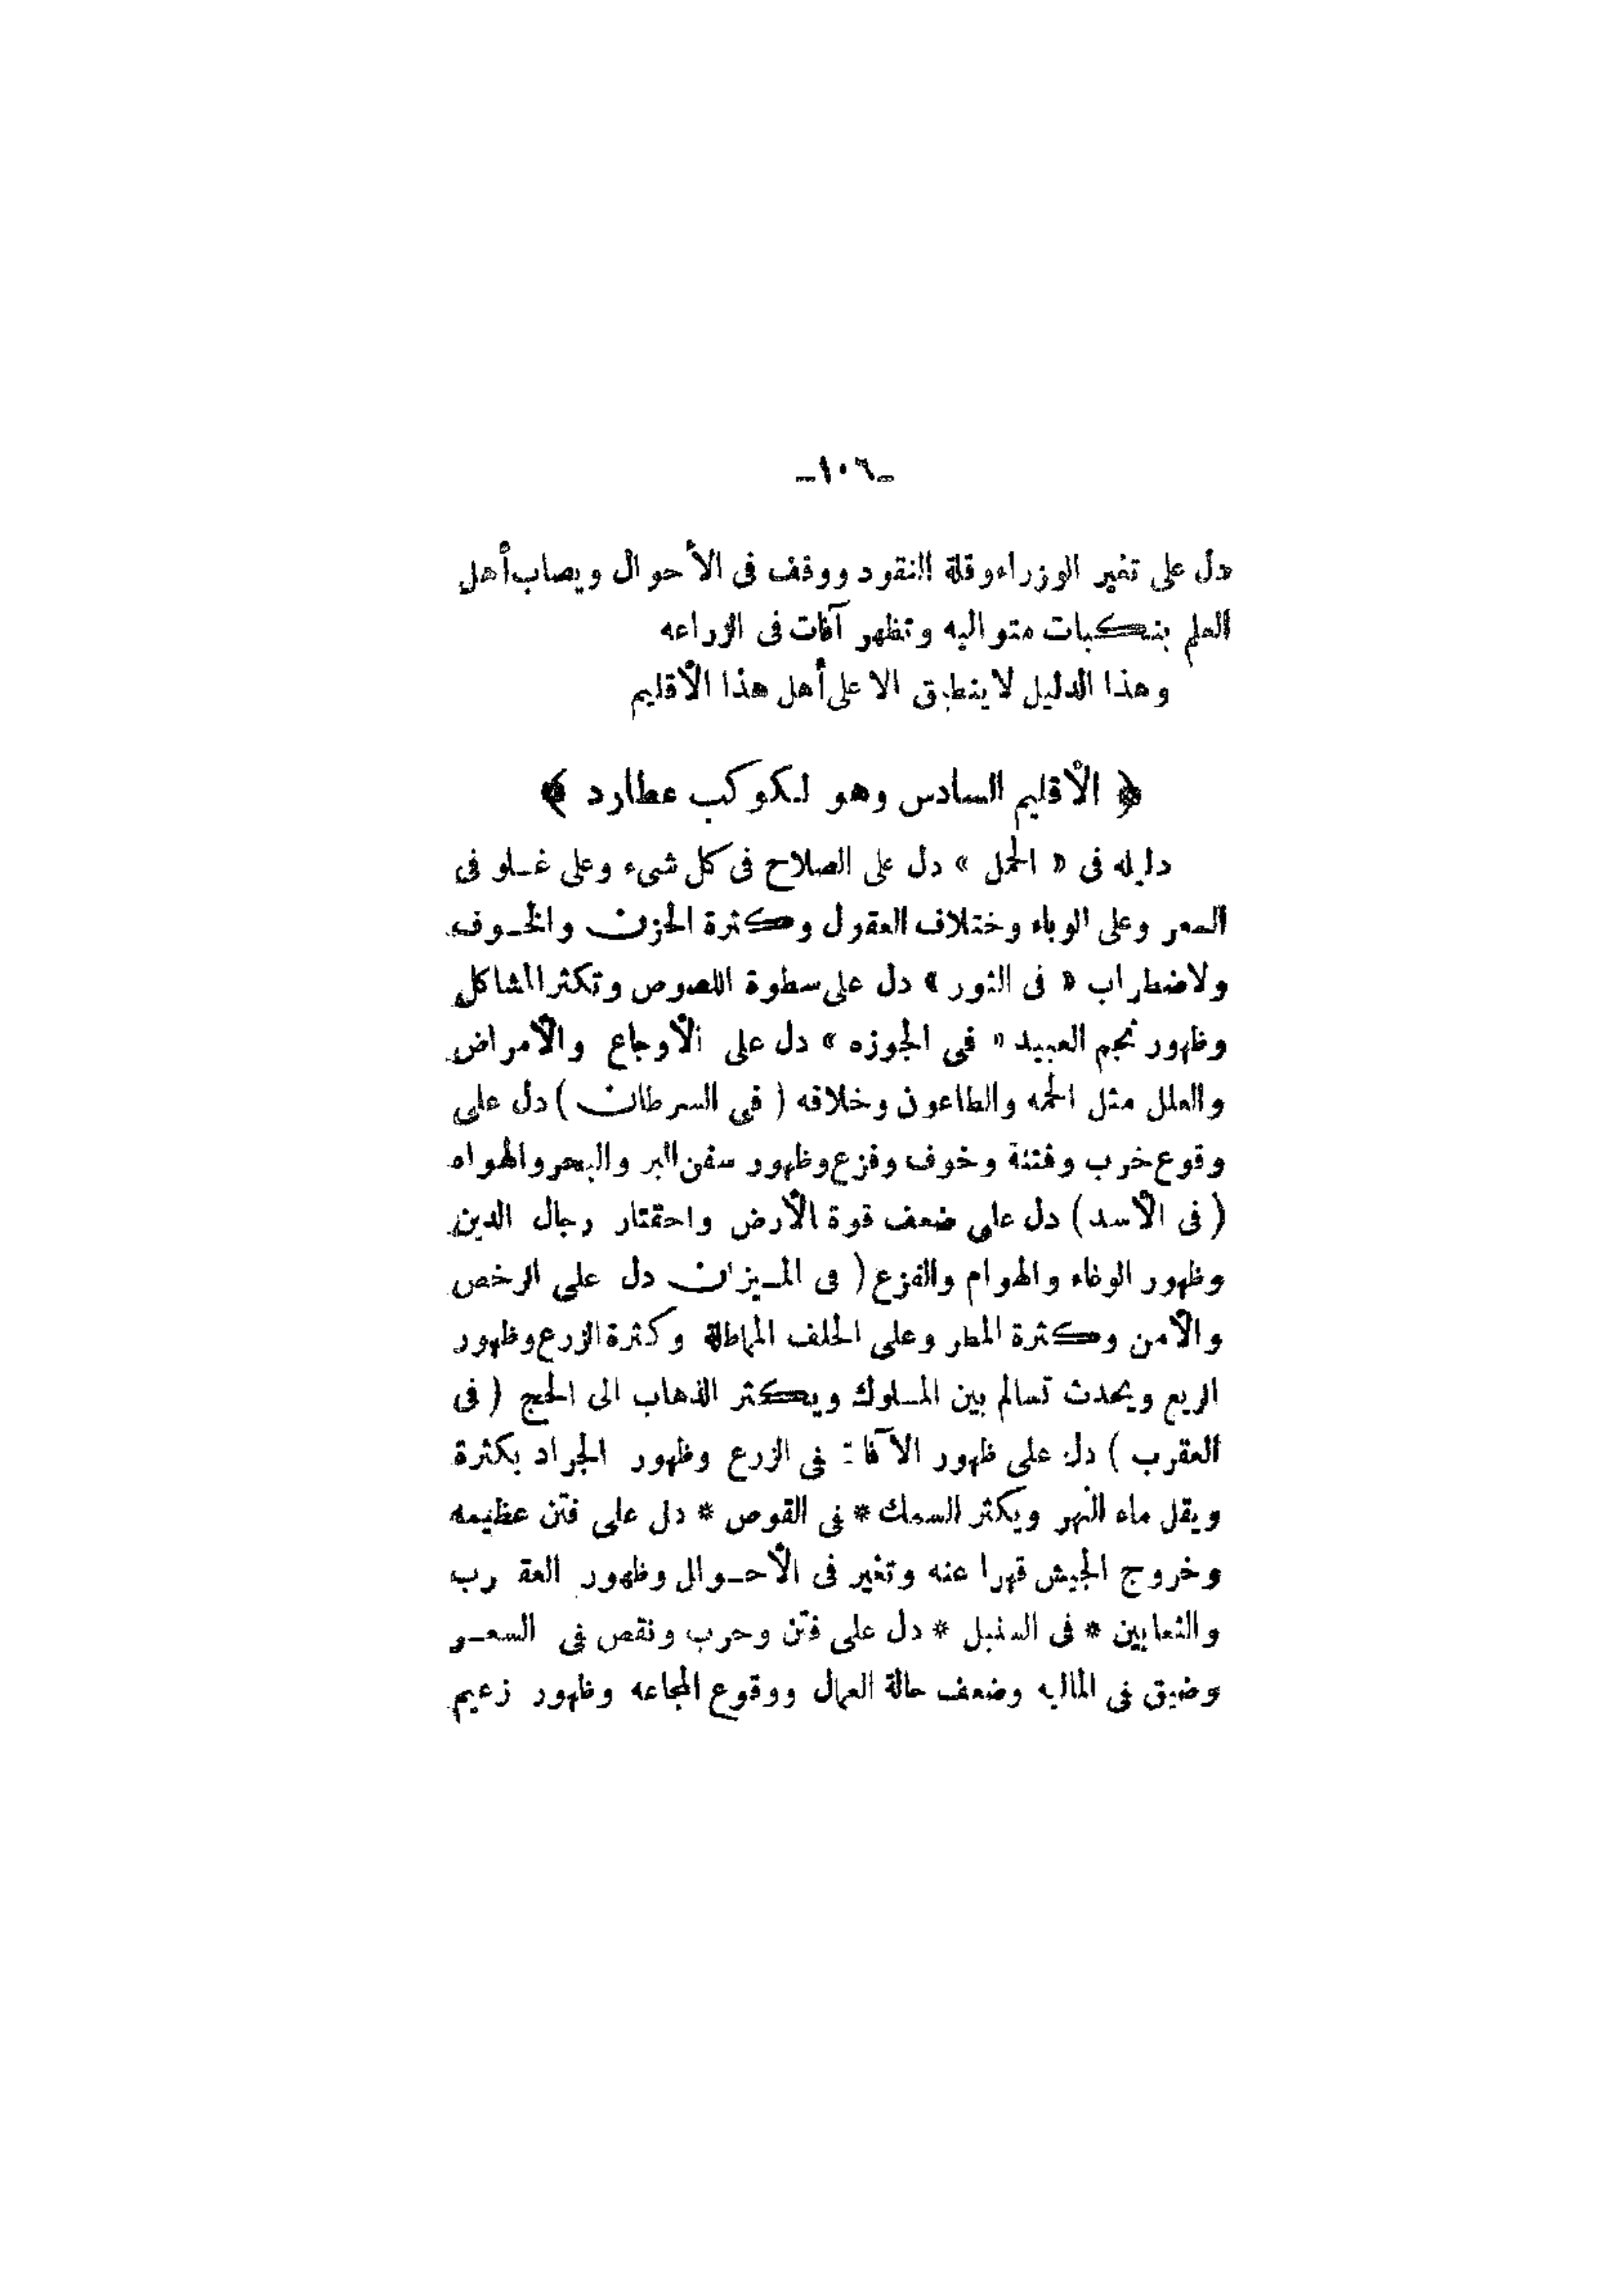 -١٠٦-
دل على تغير الوزراء وقلة النقود ووقف فى الأحوال ويصاب أهل
العلم بنكبات متواليه وتظهر آفات فى الزراعه
وهذا الدليل لا ينطبق الا على أهل هذا الأقليم
﴿ الأقليم السادس وهو لكوكب عطارد ﴾
دليله فى « الحمل » دل على الصلاح فى كل شىء وعلى غلو فى
السعر وعلى الوباء وختلاف العقول وكثرة الحزن والخوف
ولاضطراب « فى الثور » دل على سطوة اللصوص وتكثر المشاكل
وظهور نجم العبيد « فى الجوزه » دل على الأوجاع والأمراض
والعلل مثل الحمه والطاعون وخلافه ( فى السرطان ) دل على
وقوع خرب وفتنة وخوف وفزع وظهور سفن البر والبحر والهواء
( فى الأسد ) دل على ضعف قوة الأرض واحتقار رجال الدين
وظهور الوغاء والهوام والفزع ( فى الميزان دل على الرخص
والأمن وكثرة المطر وعلى الحلف الباطلة وكثرة الزرع وظهور
الريع ويحدث تسالم بين الملوك ويكثر الذهاب الى الحج ( فى
العقرب ) دل على ظهور الآفات فى الزرع وظهور الجراد بكثرة
ويقل ماء النهر ويكثر السمك * فى القوص * دل على فتن عظيمه
وخروج الجيش قهرا عنه وتغير فى الأحوال وظهور العقارب
والثعابين * فى السنبل * دل على فتن وحرب ونقص فى السعر
وضيق فى الماليه وضعف حالة العمال ووقوع المجاعه وظهور زعيم